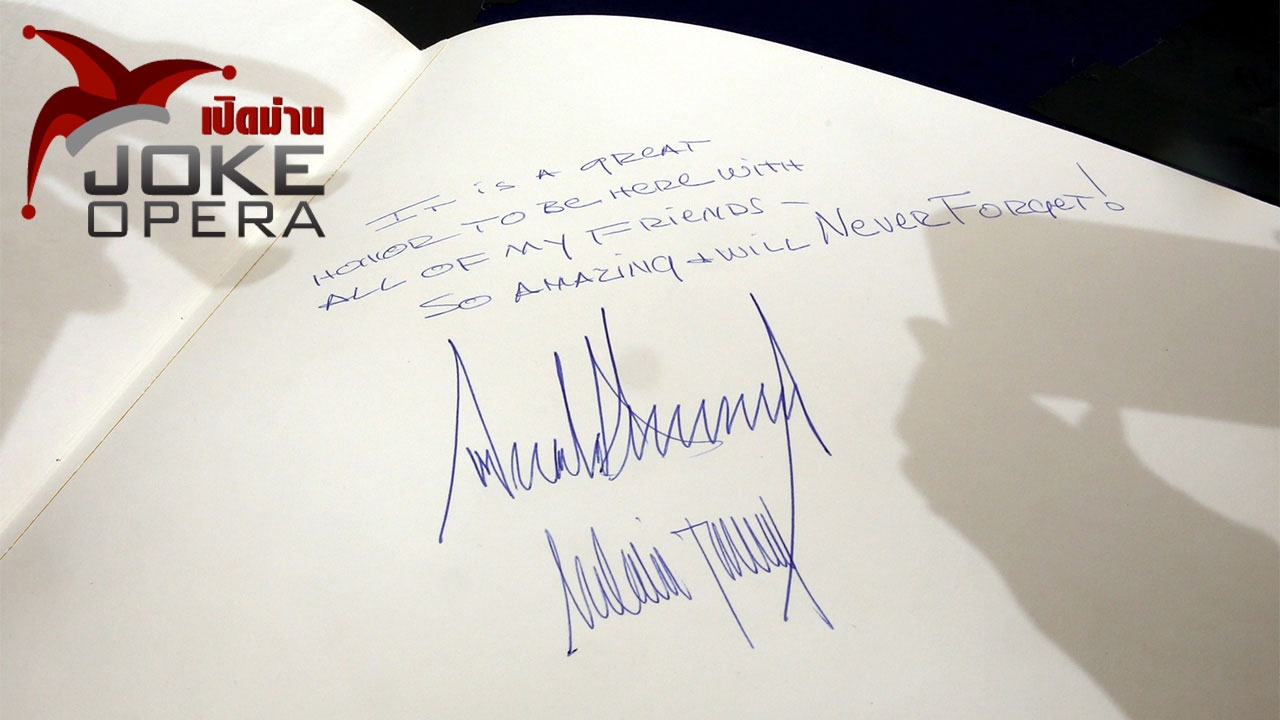 เปิดม่าน
JOKE
OPERA
IT IS A GREAT
HONOR TO BE HERE WITH
ALL OF MY FRIENDS -
SO AMAZING + WILL NEVER FORGET!